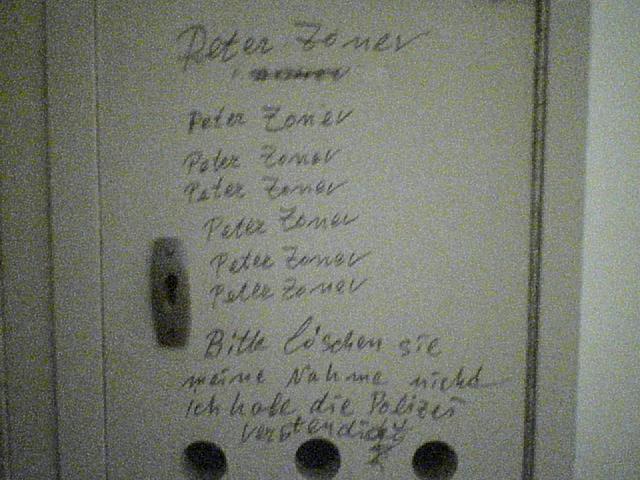 Peter Zoner
Peter Zoner
Peter Zoner
Peter Zoner
Peter Zoner
Peter Zoner
Peter Zoner
Bitte löschen sie
meine Nahme nicht
ich habe die Polizei
verständigt